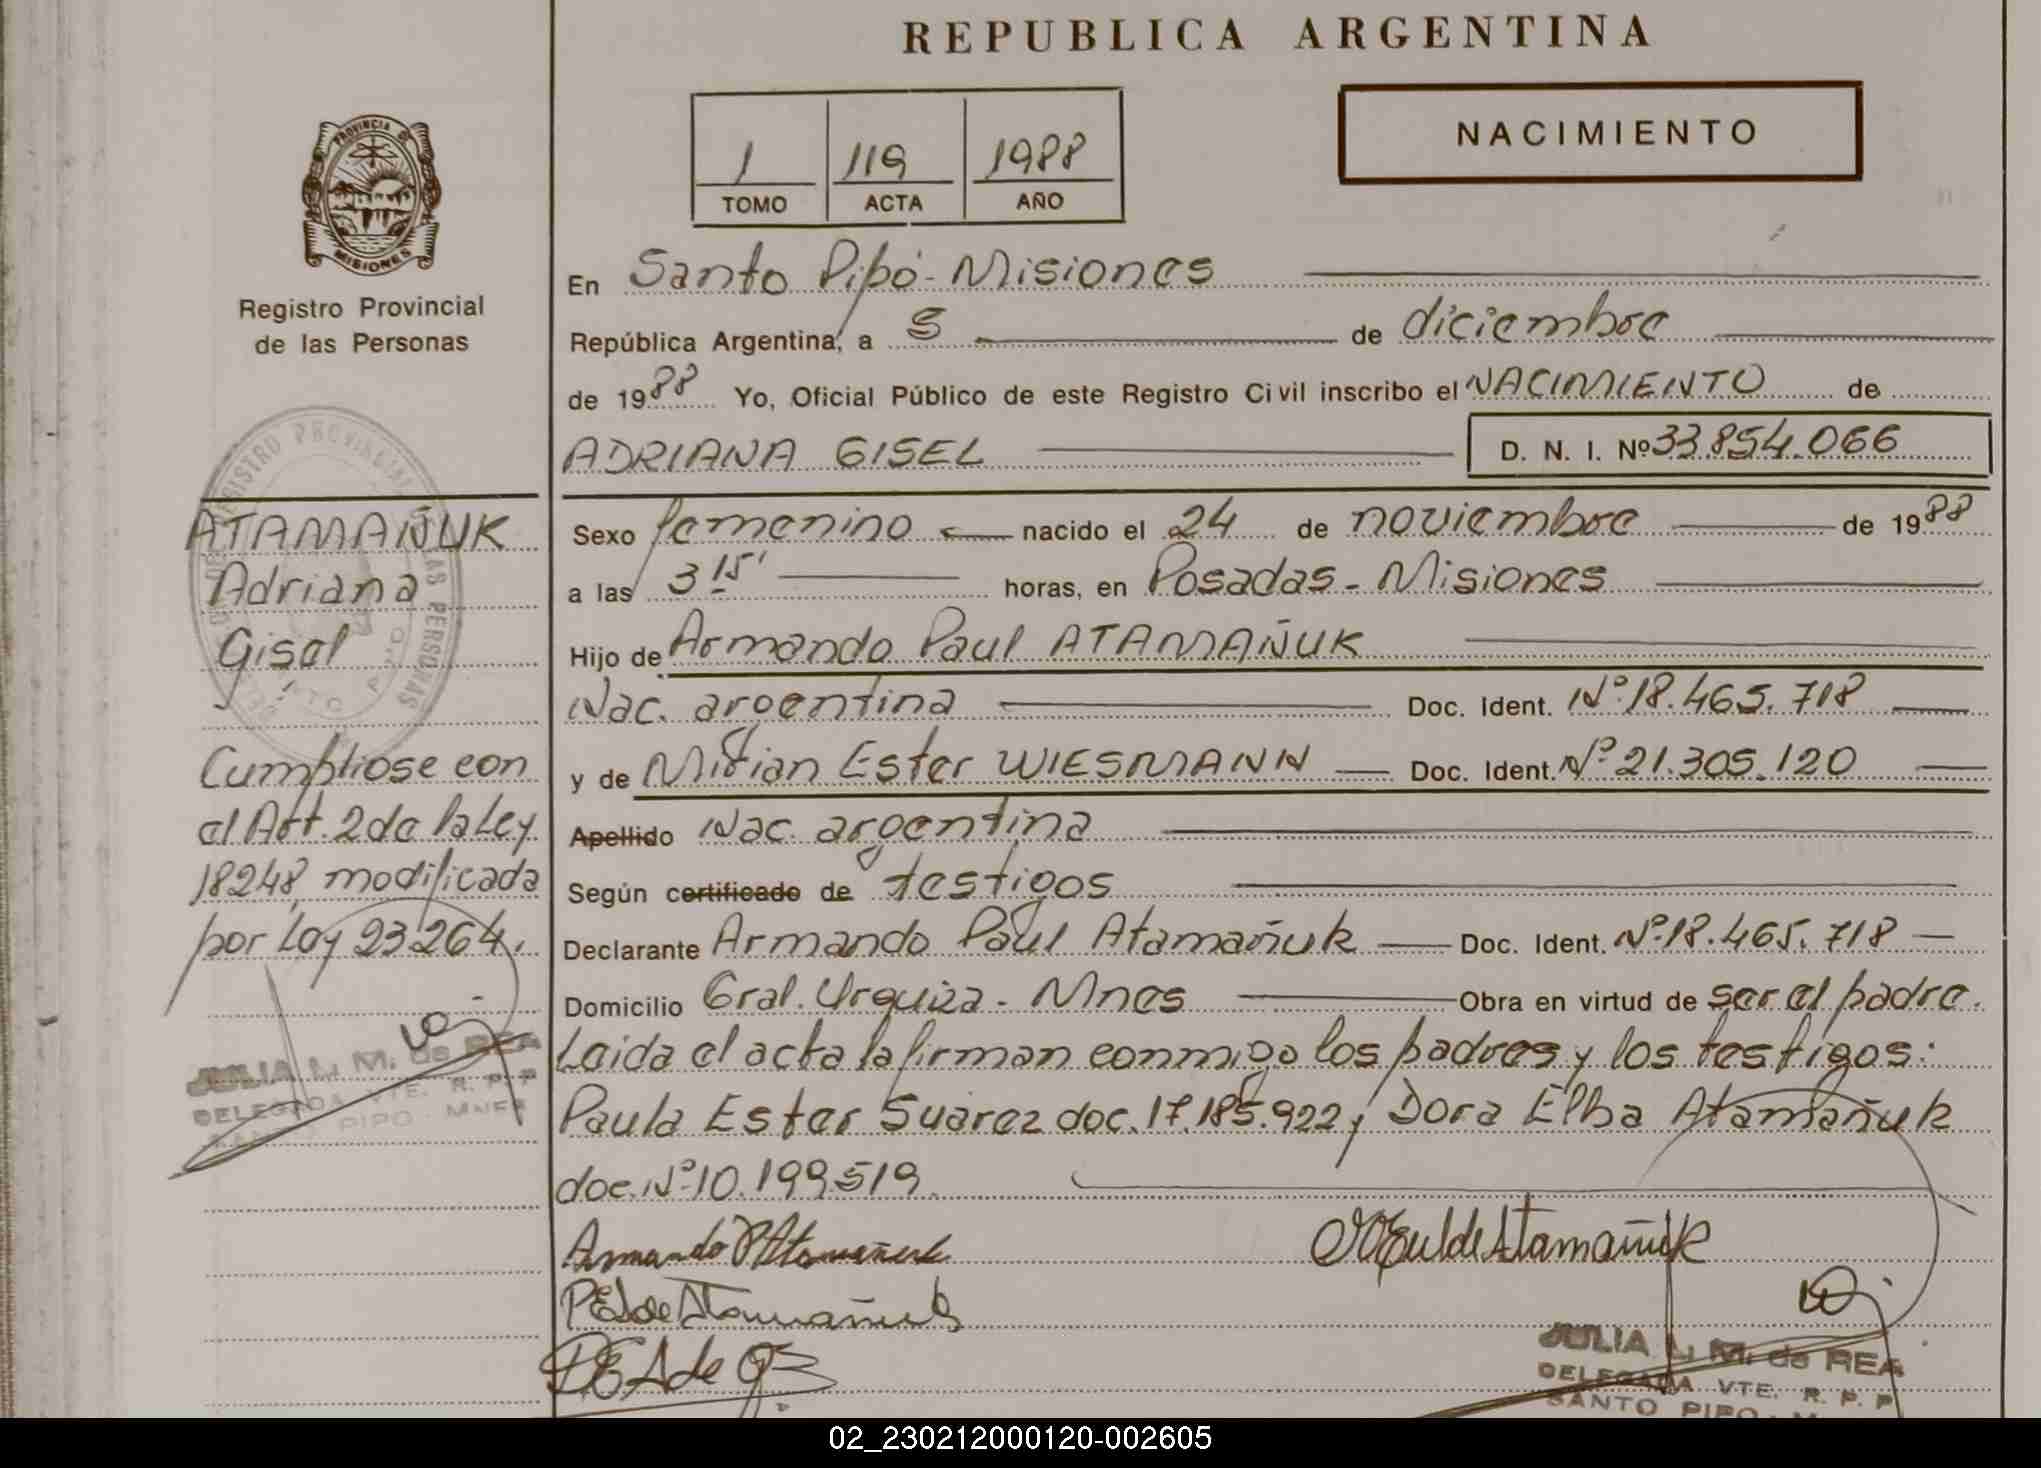 REPUBLICA ARGENTINA
1 119 1988
TOMO ACTA AÑO
NACIMIENTO
PROVINCIA DE
MISIONES
Registro Provincial
de las Personas
En Santo Pipó - Misiones
República Argentina, a 5 de diciembre
de 1988 Yo, Oficial Público de este Registro Civil inscribo el NACIMIENTO de
ADRIANA GISEL D. N. I. Nº 33.854.066
Sexo femenino nacido el 24 de noviembre de 1988
a las 3 15' horas, en Posadas - Misiones
Hijo de Armando Paul ATAMAÑUK
Nac. argentina Doc. Ident. Nº 18.465.718
y de Mirian Ester WIESMANN Doc. Ident. Nº 21.305.120
Apellido Nac. argentina
Según certificado de testigos
Declarante Armando Paul Atamañuk Doc. Ident. Nº 18.465.718
Domicilio Gral. Urquiza - Mnes Obra en virtud de ser el padre.
Leida el acta la firman conmigo los padres y los testigos:
Paula Ester Suarez doc. 17.185.922 y Dora Elba Atamañuk
doc. Nº 10.199.519.
ATAMAÑUK
Adriana
Gisel
Cumplióse con
el Art. 2 de la Ley
18248, modificada
por Ley 23264.
JULIA L. M. de REA
DELEGADA VTE. R. P. P
SANTO PIPO - Mnes
Armando P Atamañuk
de Atamañuk
de Atamañuk
DEA de
JULIA L. M. de REA
DELEGADA VTE. R. P. P
SANTO PIPO - M
02_230212000120-002605